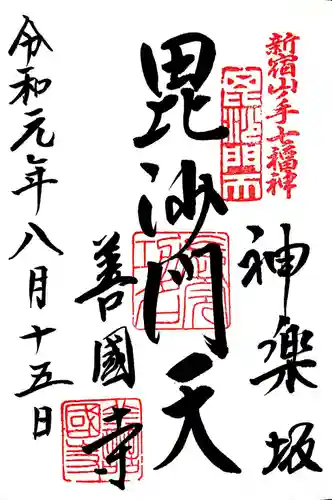 新宿山手七福神
神樂坂
毘沙門天
毘沙門天
善國寺
令和元年八月十五日